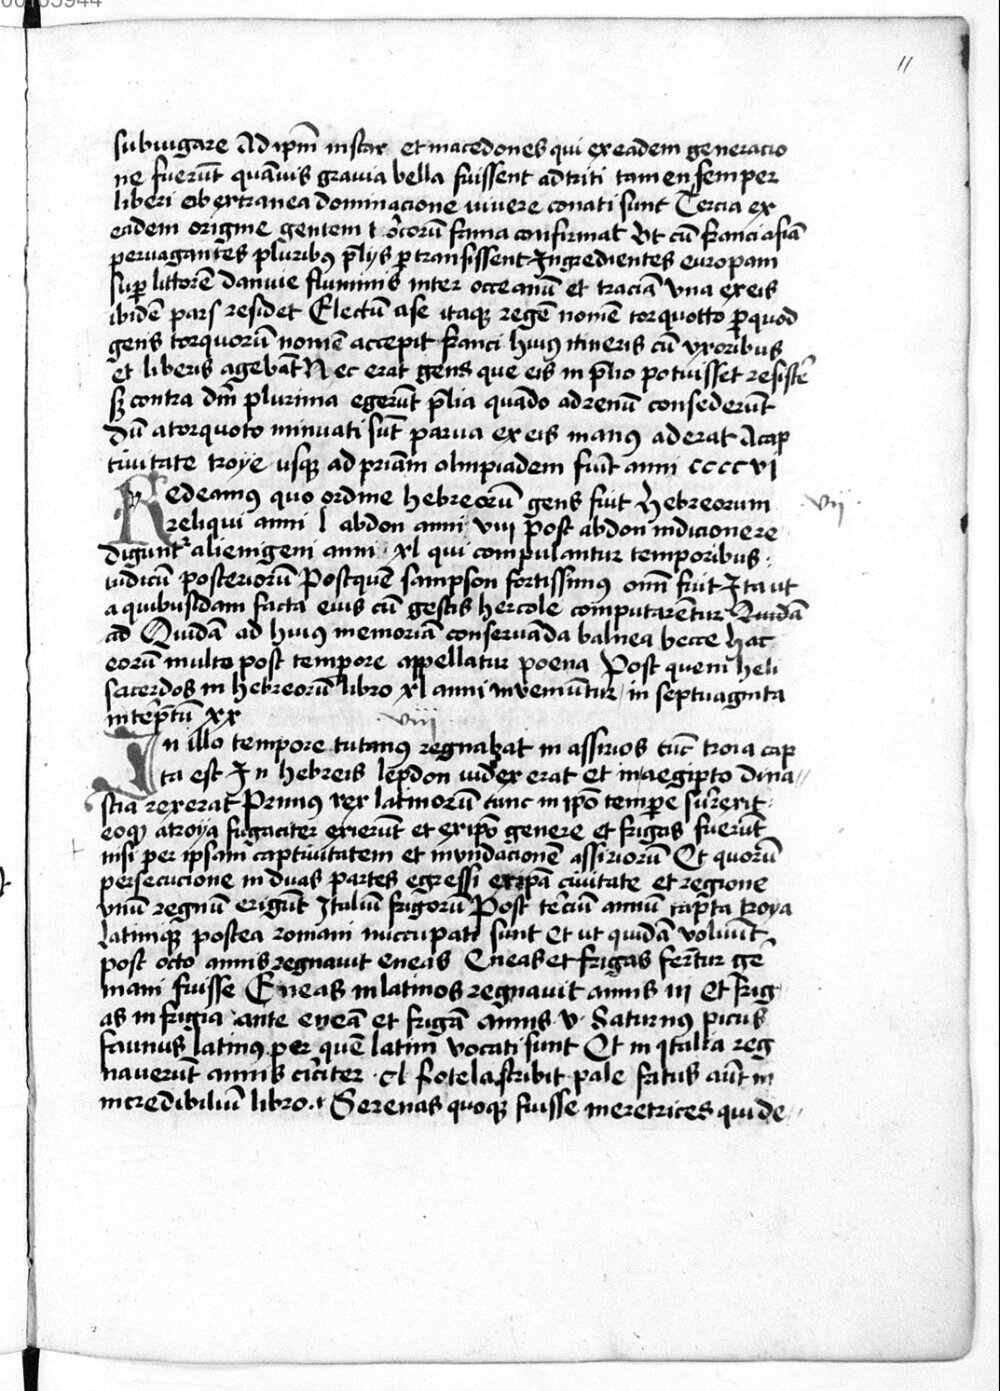 00105944
11
subiugare Ad ip̄m instar et macedones qui ex eadem generacio
ne fuerūt quāuis grauia bella fuissent adtriti tamen semper
liberi ab extranea dominacione viuere conati sunt Tercia ex
eadem origine gentem t orcorū fama confirmat Vt cū franci asiā
peruagantes pluribus p̄lys ꝑtransissent Ingredientes europam
suꝑ littorē danuie fluminis inter occeanū et traciā vna ex eis
ibidē pars residet Electū a se itaqꝫ regē nomē torquotto ꝑ quod
gens torquorū nomē accepit franci huius itineris cū vxoribus
et liberis agebāt Nec erat gens que eis in p̄lio potuisset resistē
sꝫ contra dm̄ plurima egerūt p̄lia quādo ad renū consederūt
dū a torquoto minuati sūt parua ex eis manus aderat A cap
tiuitate troye usqꝫ ad priām olmpiadem fiūt anni cccc vi
Redeamus quo ordine hebreorū gens fuit Hebreorum
vii
reliqui anni l abdon anni viii post abdon in dicionere
digunt alienigeni anni xl qui computantur temporibus
iudicū posteriorū Postquē sampson fortissimus om̄ fuit Ita ut
a quibusdam facta eius cū gestis hercole computarētur Quidā
ad Quidā ad huius memoriā conseruāda balnea becce hac
eorū multo post tempore appellatur poena Post quem heli
sacerdos in hebreorū libro xl anni inveniūtur in septuaginta
interp̄tū xx
viii
In illo tempore tutanus regnabat in assirios tūc troia cap
ta est In hebreis lepdon iudex erat et in aegipto dina
stia rexerat Primus rex latinorū tunc in ipō temꝑe surrexit
eoqꝫ a troya fugaciter exierūt et ex ipō genere et frigas fuerūt
nisi per ipsam captiuitatem et inundacionē assiriorū Et quorū
persecucione in duas partes egressi ex ipā ciuitate et regione
vnū regnū erigūt Italiū frigorū Post terciū annū capta troya
latiniqꝫ postea romani nuccupati sunt Et ut quidā volūt
post octo annis regnauit eneas Eneas et frigas fertur gē
mani fuisse Eneas in latinos regnauit annis iii Et frig
as in frigia ante eneā et frigā annis v Saturnus picus
faunus latinus per quē latini vocati sunt Et in italia reg
nauerūt annis circiter cl fotela scribit pale fatus aūt in
incredibiliū libro i Serenas quoqꝫ fuisse meretrices qui de